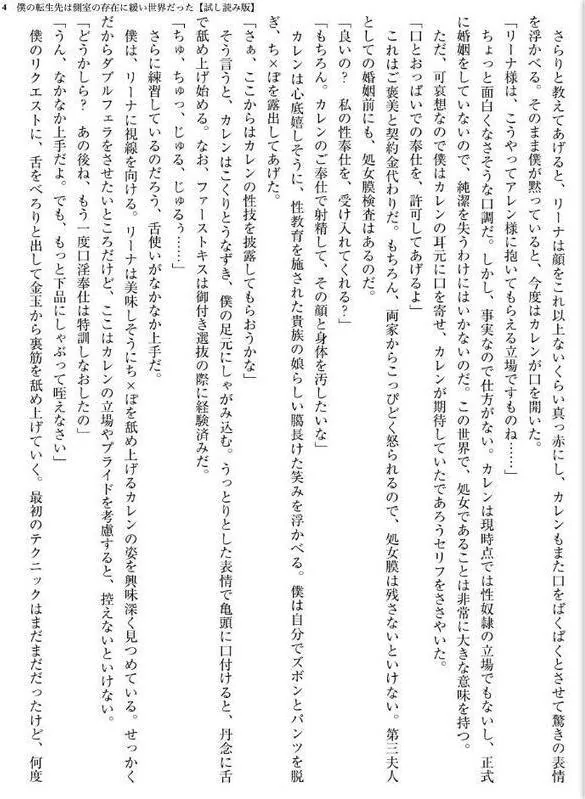 4　僕の転生先は側室の存在に緩い世界だった【試し読み版】
さらりと教えてあげると、リーナは顔をこれ以上ないくらい真っ赤にし、カレンもまた口をぱくぱくとさせて驚きの表情
を浮かべる。そのまま僕が黙っていると、今度はカレンが口を開いた。
「リーナ様は、こうやってアレン様に抱いてもらえる立場ですものね……」
ちょっと面白くなさそうな口調だ。しかし、事実なので仕方がない。カレンは現時点では性奴隷の立場でもないし、正式
に婚姻をしていないので、純潔を失うわけにはいかないのだ。この世界で、処女であることは非常に大きな意味を持つ。
ただ、可哀想なので僕はカレンの耳元に口を寄せ、カレンが期待していたであろうセリフをささやいた。
「口とおっぱいでの奉仕を、許可してあげるよ」
これはご褒美と契約金代わりだ。もちろん、両家からこっぴどく怒られるので、処女膜は残さないといけない。第三夫人
としての婚姻前にも、処女膜検査はあるのだ。
「良いの？　私の性奉仕を、受け入れてくれる？」
「もちろん。カレンのご奉仕で射精して、その顔と身体を汚したいな」
カレンは心底嬉しそうに、性教育を施された貴族の娘らしい臈長けた笑みを浮かべる。僕は自分でズボンとパンツを脱
ぎ、ち×ぽを露出してあげた。
「さぁ、ここからはカレンの性技を披露してもらおうかな」
そう言うと、カレンはこくりとうなずき、僕の足元にしゃがみ込む。うっとりとした表情で亀頭に口付けると、丹念に舌
で舐め上げ始める。なお、ファーストキスは御付き選抜の際に経験済みだ。
「ちゅ、ちゅっ、じゅる、じゅるぅ……」
さらに練習しているのだろう、舌使いがなかなか上手だ。
僕は、リーナに視線を向ける。リーナは美味しそうにち×ぽを舐め上げるカレンの姿を興味深く見つめている。せっかく
だからダブルフェラをさせたいところだけど、ここはカレンの立場やプライドを考慮すると、控えないといけない。
「どうかしら？　あの後ね、もう一度口淫奉仕は特訓しなおしたの」
「うん、なかなか上手だよ。でも、もっと下品にしゃぶって咥えなさい」
僕のリクエストに、舌をべろりと出して金玉から裏筋を舐め上げていく。最初のテクニックはまだまだだったけど、何度